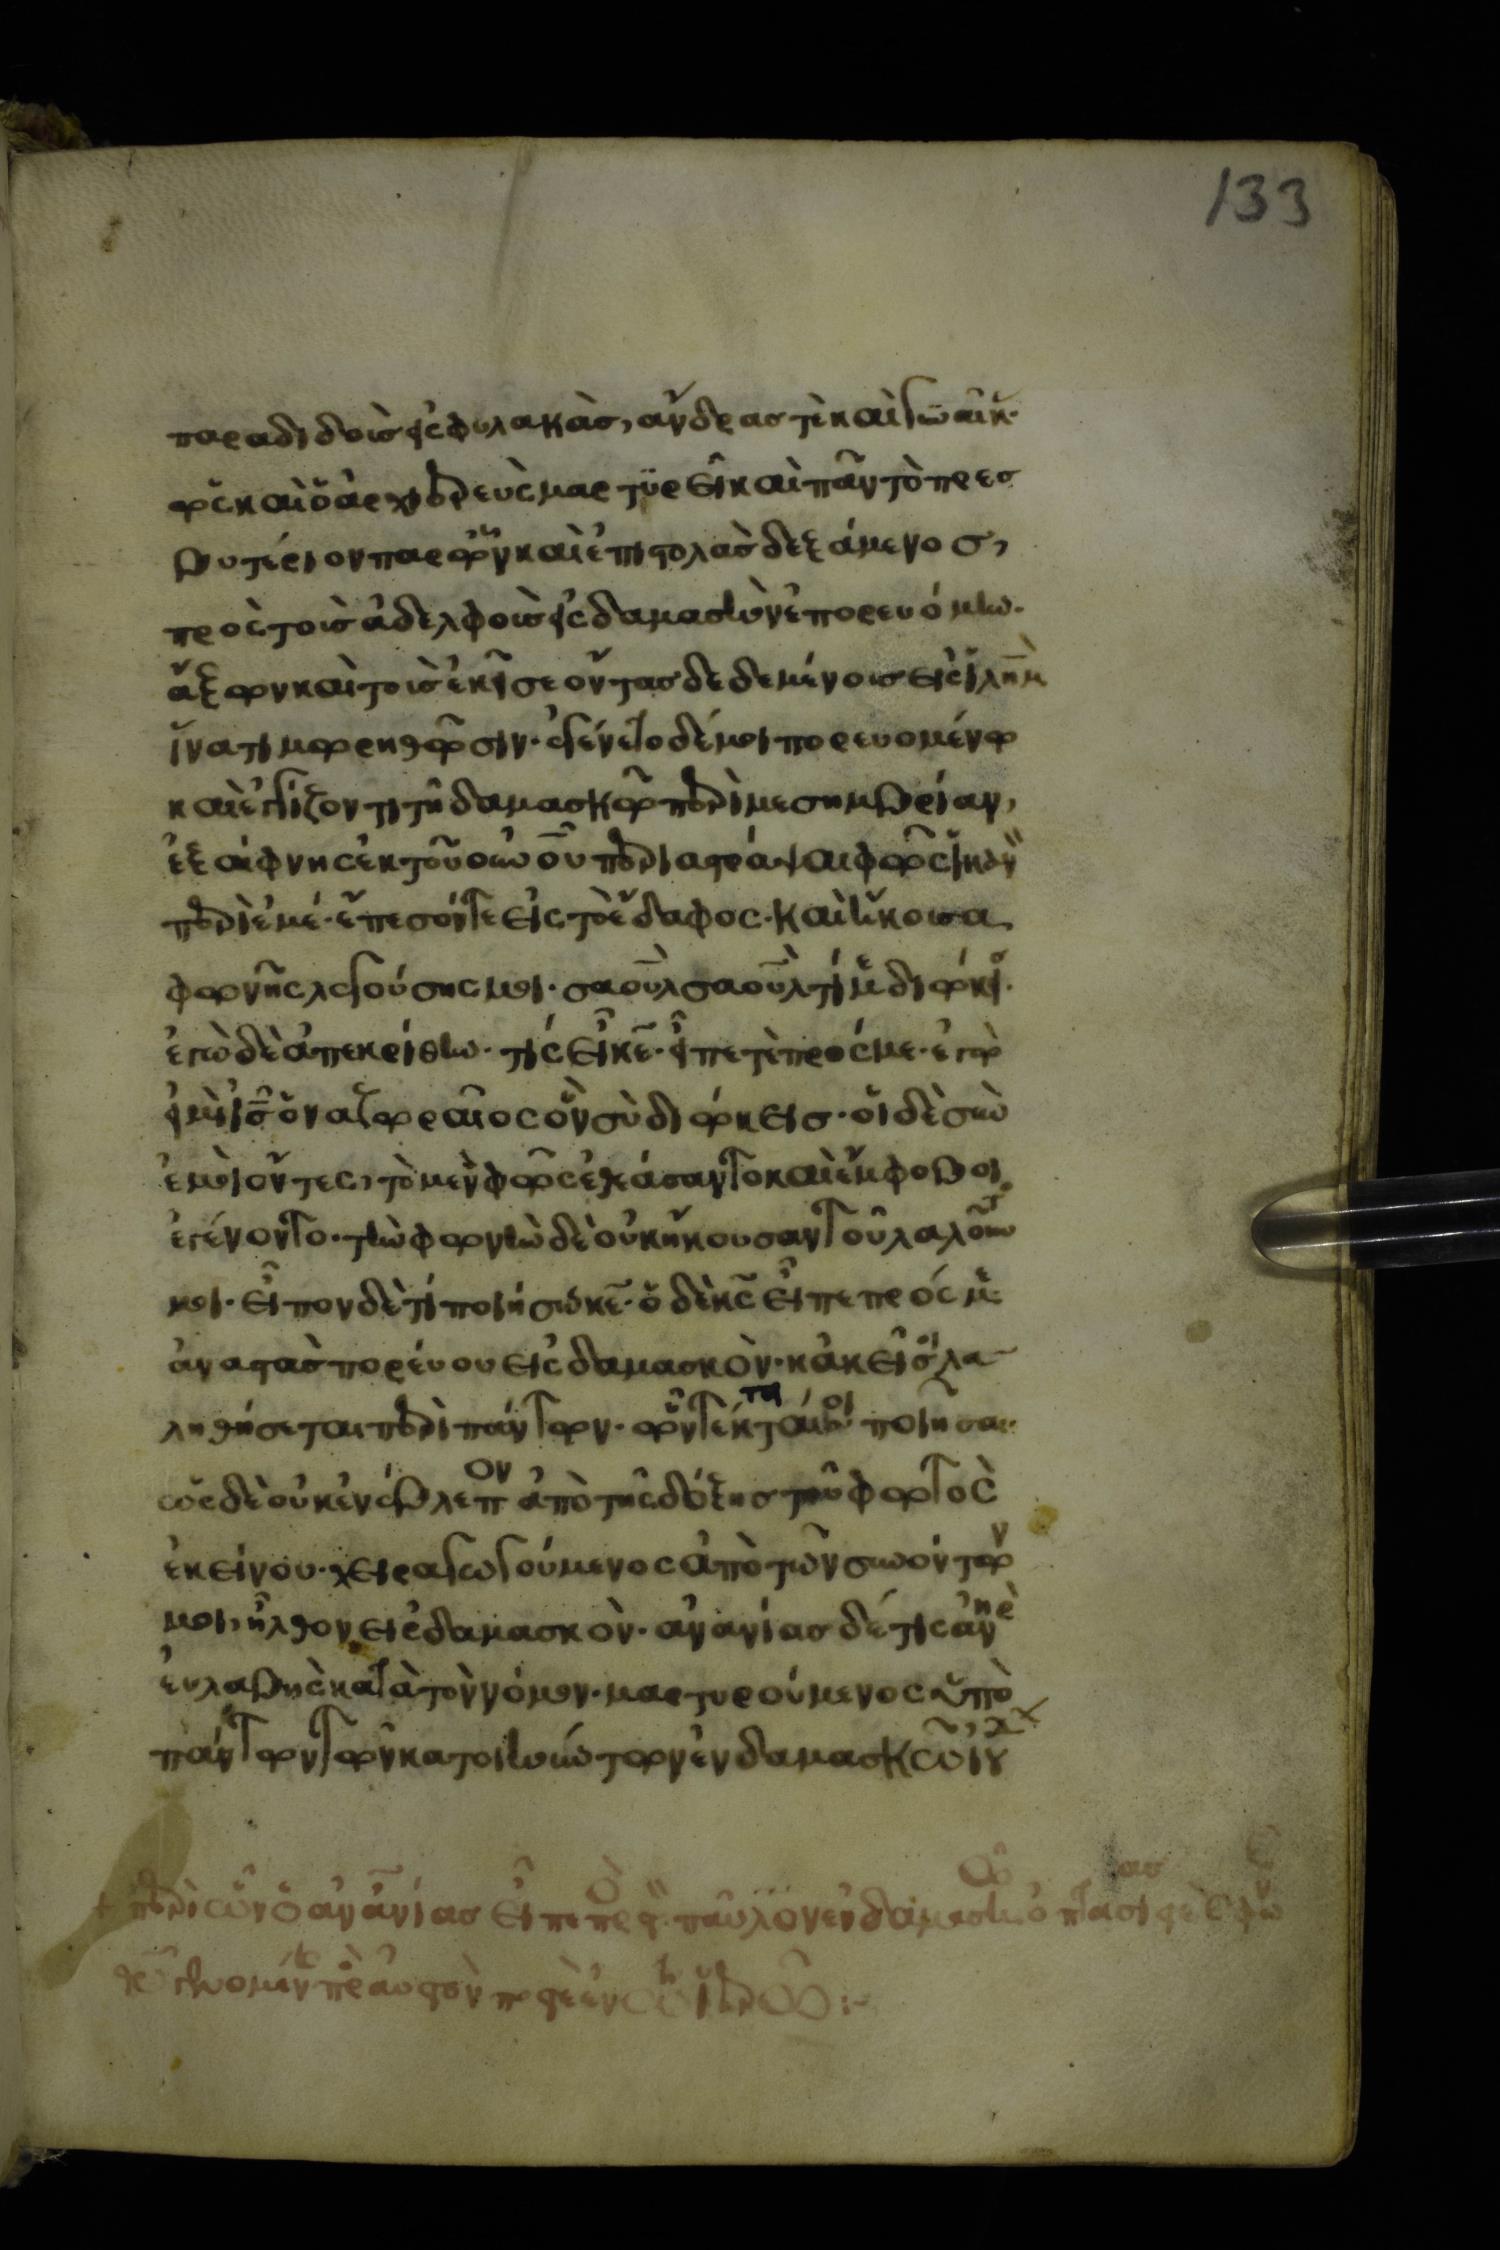 133
παραδιδοὺς εἰς φυλακὰς, ἄνδρας τὲ καὶ γυναῖκ
ὡς καὶ ὁ ἀρχιερεὺς μαρτυρεῖ καὶ πᾶν τὸ πρεσ
βυτέριον παρ ὧν καὶ ἐπιστολὰς δεξάμενος,
πρὸς τοὺς ἀδελφοὺς εἰς δαμασκὸν ἐπορευόμην.
ἄξων καὶ τοὺς ἐκεῖσε ὄντας δεδεμένους εἰς ἰλημ
ἵνα τιμωρηθῶσιν. ἐγένετο δέ μοι πορευομένω
καὶ ἐγγίζοντι τῆ δαμασκῶ περὶ μεσημβρίαν,
ἐξαίφνης ἐκ τοῦ οὐνοῦ περιαστράψαι φῶς ἱκανὸν
περὶ ἐμέ. ἔπεσόν τε εἰς τὸ ἔδαφος. καὶ ἤκουσα
φωνῆς λεγούσης μοι. σαοὺλ σαοὺλ τί με διώκεις.
ἐγὼ δὲ ἀπεκρίθην. τίς εἶ κε. εἶπέ τε πρός με. ἐγώ
εἰμι ις ὁ ναζωραῖος ὃν σὺ διώκεις. οἱ δὲ σὺν
ἐμοὶ ὄντες, τὸ μὲν φῶς ἐθεάσαντο καὶ ἔμφοβοι
ἐγένοντο. τὴν φωνὴν δὲ οὐκ ἤκουσαν τοῦ λαλοῦντός
μοι. εἶπον δὲ τί ποιήσω κε. ὁ δὲ κς εἶπε πρός με
ἀναστὰς πορεύου εἰς δαμασκὸν. κἀκεῖ σοι λα
ληθήσεται περὶ πάντων. ὧν τέκταταί σοι ποιῆσαι.
ὡς δὲ οὐκ ἐνέβλεπον ἀπὸ τῆς δόξης τοῦ φωτὸς
ἐκείνου. χειραγωγούμενος ἀπὸ τῶν συνόντων
μοι, ἦλθον εἰς δαμασκὸν. ἀνανίας δέ τις ἀνὴρ
εὐλαβὴς κατὰ τὸν νόμον. μαρτυρούμενος ὑπὸ
πάντων τῶν κατοικούντων ἐν δαμασκῶ ἰου
+ περὶ ὧν ὁ ἀνανίας εἶπε πρὸς παῦλον ἐν δαμασκῶ